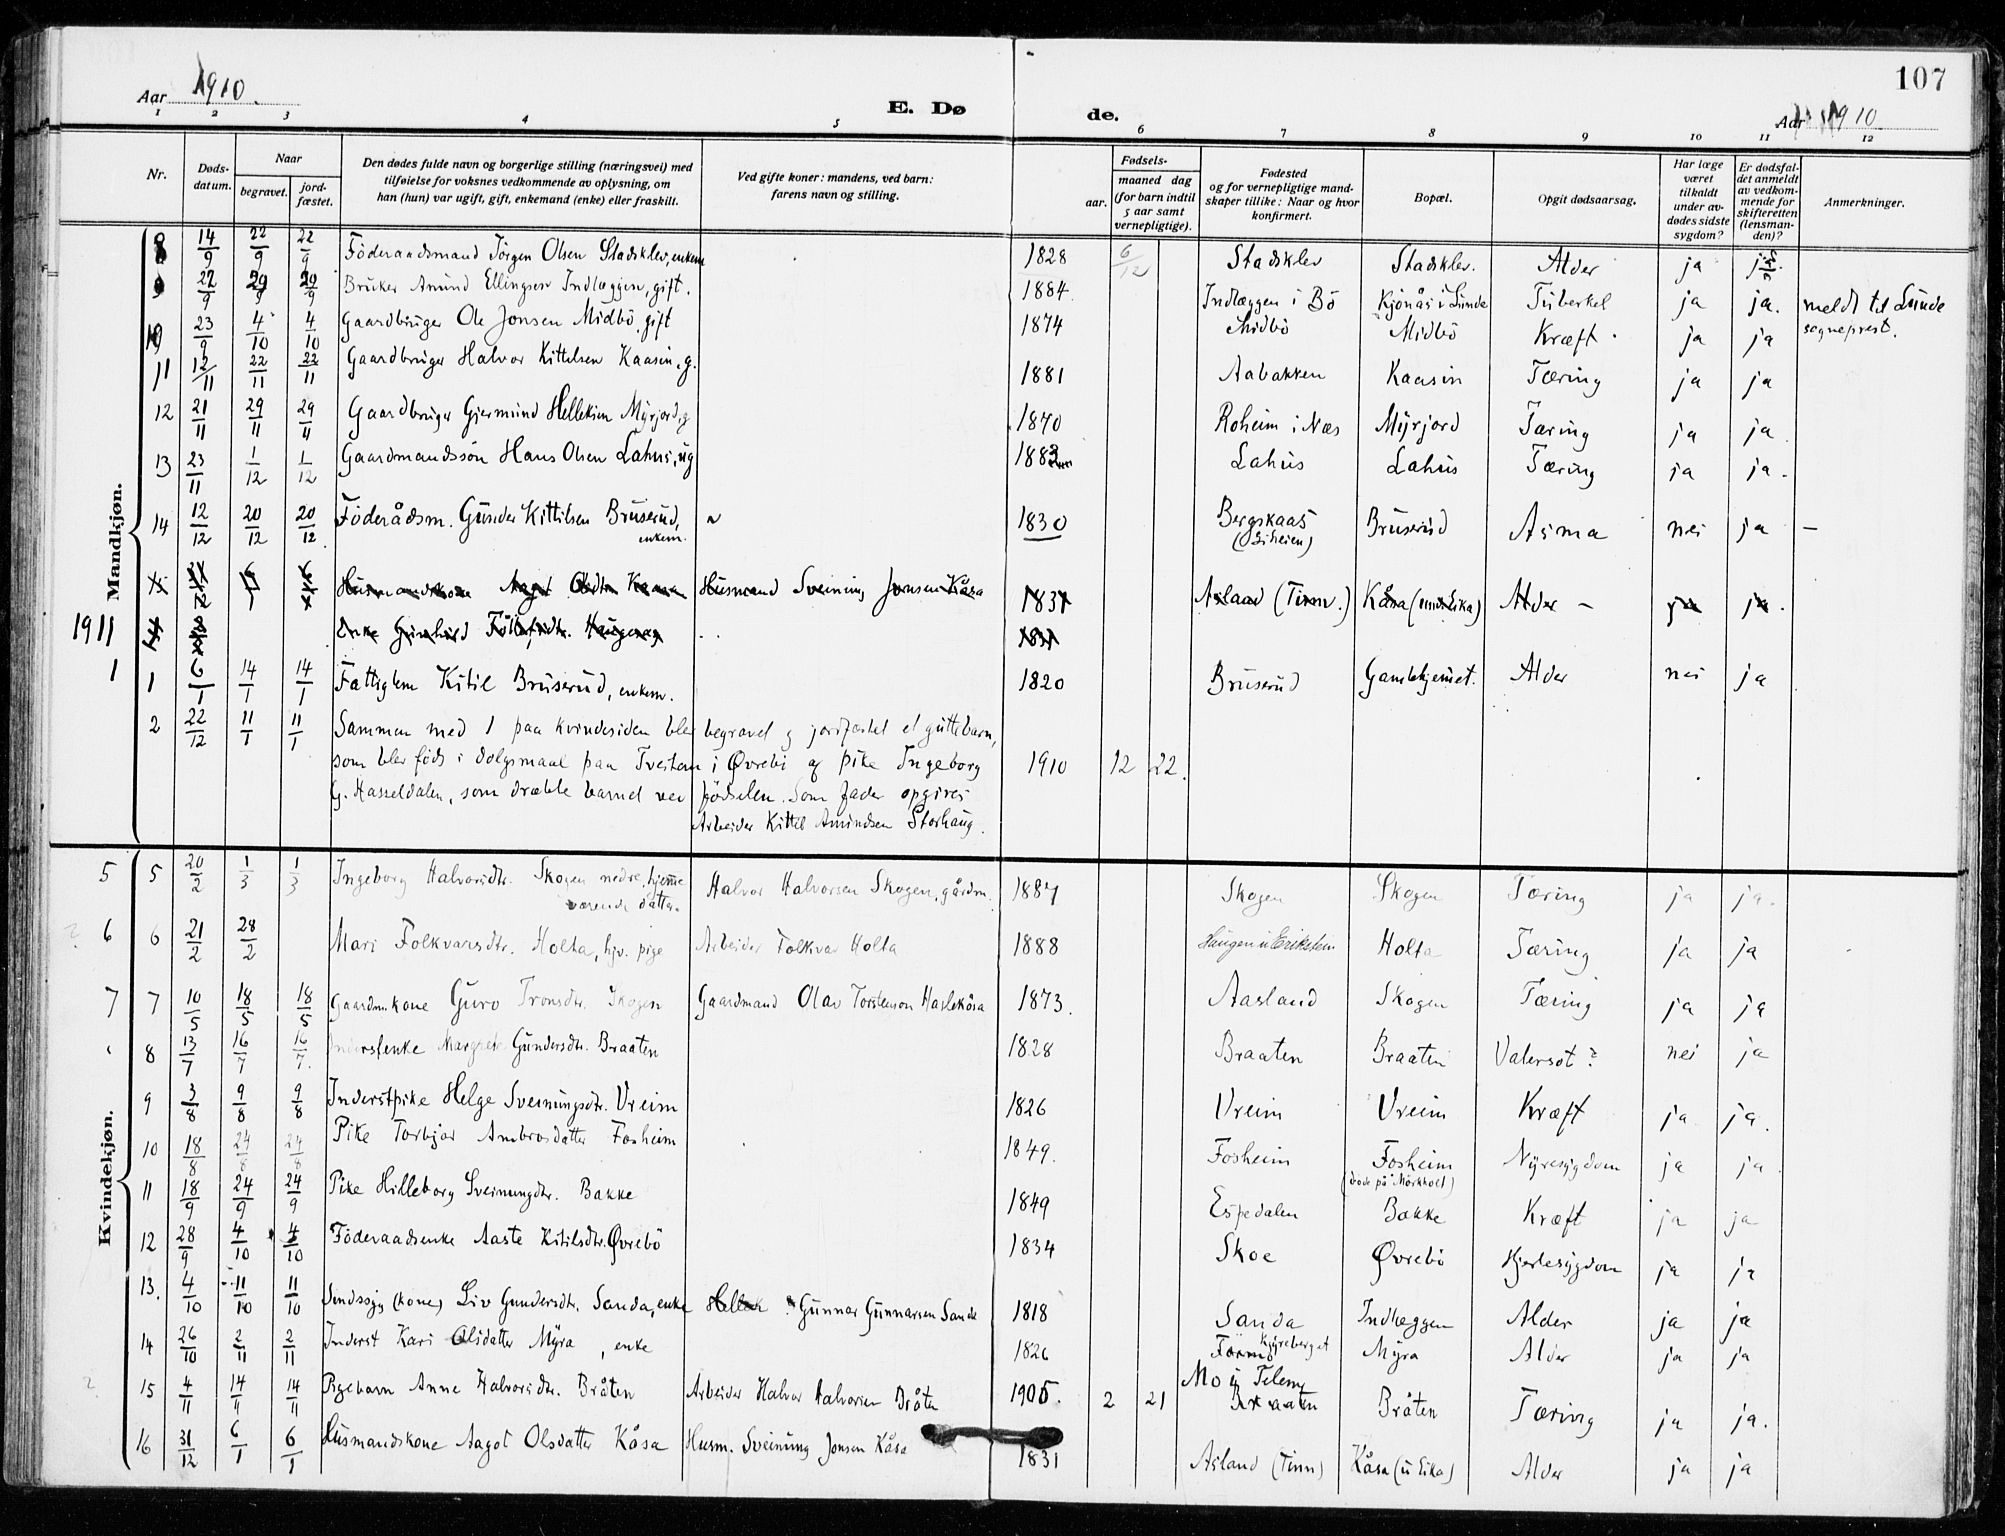 107
Aar 1910.
E. Døde.
Aar 1910
1 2 3 4 5 6 7 8 9 10 11 12
Nr.
Døds-datum.
Naar
begravet.
jord-fæstet.
Den dødes fulde navn og borgerlige stilling (næringsvei) med
tilføielse for voksnes vedkommende av oplysning, om
han (hun) var ugift, gift, enkemand (enke) eller fraskilt.
Ved gifte koner: mandens, ved barn:
farens navn og stilling.
Fødsels-
aar. maaned dag
(for barn indtil
5 aar samt
vernepligtige).
Fødested
og for vernepligtige mand-
skaper tillike: Naar og hvor
konfirmert.
Bopæl.
Opgit dødsaarsag.
Har læge
været
tilkaldt
under av-
dødes sidste
sygdom?
Er dødsfal-
det anmeldt
av vedkom-
mende for
skifteretten
(lensman-
den)?
Anmerkninger.
Mandkjøn.
8 14/9 22/9 22/9 Föderaadsmand Jörgen Olsen Stadsklev, enkem 1828 6/12 Stadsklev Stadsklev. Alder ja
9 22/9 29/9 29/9 Bruker Amund Ellingsen Indlæggen, gift. 1884. Indlæggen i Bö Kjonås i Lunde Tuberkel ja ja. meldt til Lunde
sogneprest.
10 23/9 4/10 4/10 Gaardbruger Ole Jonsen Midbö, gift 1874 Midbö Midbö Kræft. ja ja
11 12/11 22/11 22/11 Gaardbruger Halvor Kittelsen Kaasin, g. 1881 Aabakken Kaasin Tæring ja ja
12 21/11 29/11 29/11 Gaardbruger Gjermund Helleksen Myrjord, g 1870 Roheim i Næs Myrjord Tæring ja ja
13 23/11 1/12 1/12 Gaardmandssön Hans Olsen Lahus, ug 1883 Lahus Lahus Tæring ja ja
14 12/12 20/12 20/12 Föderådsm. Gunder Kittilsen Bruserud, enkem. 1830 Bergskaas (Liheien) Bruserud Asma nei ja —
Husmandskone Aagot Olsdtr Kaasa Husmand Sveinung Jonsen Kåsa 1831 Asland (Tinn.) Kåsa (und. Eika) Alder – ja ja.
1911
Enke Gunhild
1 1 6/1 14/1 14/1 Fattiglem Kitil Bruserud, enkem. 1820 Bruserud Gamlehjemet. Alder nei ja
2 22/12 11/1 11/1 Sammen med 1 paa kvindesiden blev begravet og jordfæstet et guttebarn,
som blev födt i dolgsmaal paa Tveitan i Øvrebö af pike Ingeborg 1910 12 22.
G. Hasseldalen, som dræbte barnet ved födselen. Som fader opgives
Arbeider Kittel Amundsen Storhaug.
Kvindekjøn.
5 5 20/2 1/3 1/3 Ingeborg Halvorsdtr. Skogen nedre, hjemme
værende datter. Halvor Halvorsen Skogen, gårdm. 1887 Skogen Skogen Tæring ja ja.
? 6 6 21/2 28/2 Mari Folkvarsdtr. Holta, hjv. pige Arbeider Folkvar Holta 1888 Haugen u Erikstein Holta Tæring ja ja
7 7 10/5 18/5 18/5 Gaardm.kone Guro Tronsdtr. Skogen Gaardmand Olav Torstenson Haslekåsa 1873. Aasland Skogen Tæring ja ja
8 13/7 16/7 16/7. Inderstenke Margrete Gundersdtr. Braaten 1828 Braaten Braaten Vatersot? nei ja
9 3/8 9/8 9/8 Inderstpike Helge Sveinungsdtr. Vreim 1826 Vreim Vreim Kræft ja ja.
10 18/8 24/8 24/8 Pike Torbjør Ambrosdatter Fosheim 1849. Fosheim Fosheim
(döde på Mörkholt) Nyresygdom ja ja
11 18/9 24/9 24/9 Pike Hilleborg Sveinungdtr. Bakke 1849 Espedalen Bakke Kræft ja ja
12 28/9 4/10 4/10 Föderaadsenke Aaste Kitilsdtr. Øvrebö 1834 Skoe Øvrebö Hjertesygdom ja ja
13. 4/10 11/10 11/10 Sindssyg (kone) Liv Gundersdtr. Sanda, enke Gunnar Gunnarsen Sande 1818 Sanda Indlæggen Alder ja ja
14 26/10 2/11 2/11 Inderst Kari Olsdatter Myra, enke 1826 Kyreberget Myra Alder ja ja
? 15 4/11 14/11 14/11 Pigebarn Anne Halvorsdtr. Bråten Arbeider Halvor Halvorsen Bråten 1905. 2 21 Mo i Telem. Braaten Bråten Tæring ja ja.
16 31/12 6/1 6/1 Husmandskone Aagot Olsdatter Kåsa Husm. Sveinung Jonsen Kåsa 1831 Asland (Tinn) Kåsa (u Eika) Alder ja ja